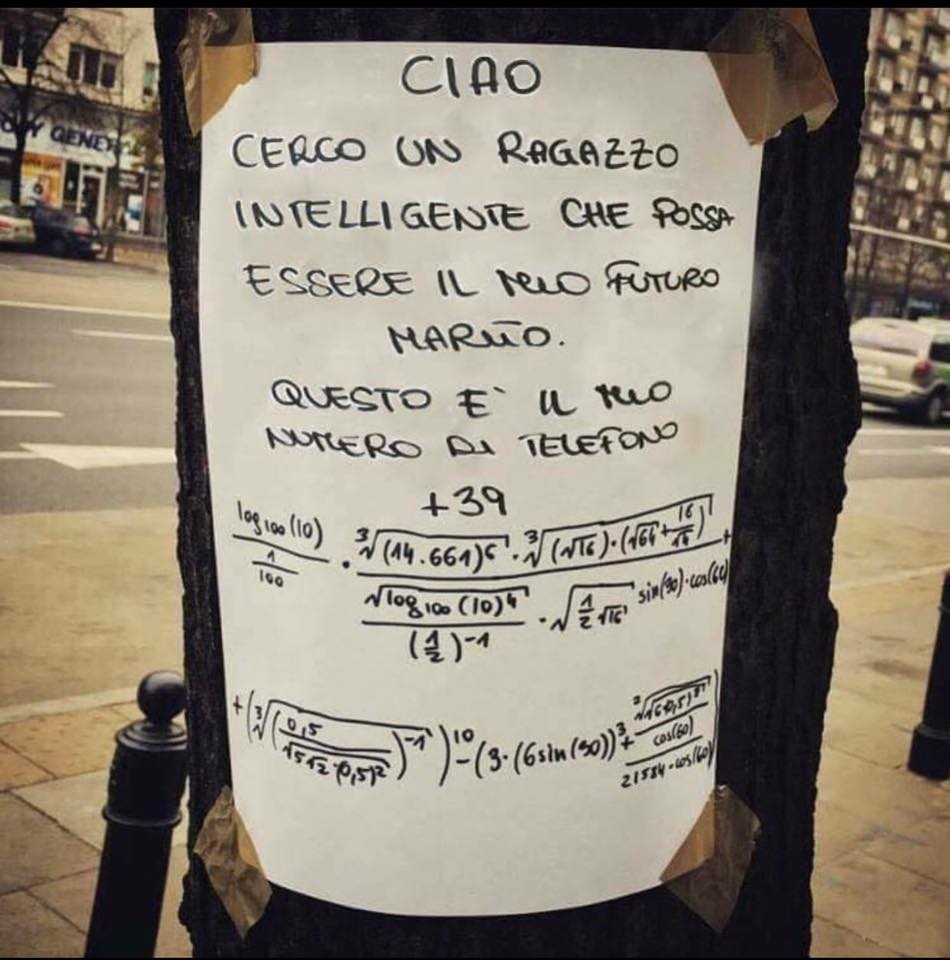 CIAO
CERCO UN RAGAZZO
INTELLIGENTE CHE POSSA
ESSERE IL MIO FUTURO
MARITO.
QUESTO E' IL MIO
NUMERO DI TELEFONO
+39
log₁₀₀(10) / (1/100) · (∛(14.661)⁶ · ∛((√16)·(√64+16/15))) / ((√log₁₀₀(10)⁴ / (1/2)⁻¹) · √(1/2 √16)) sin(90)·cos(60) +
+(∛(0,5/(√5√2·(0,5)²))⁻¹)¹⁰-(3·(6sin(90))³+
cos(60)
21584·cos(60)
GENER